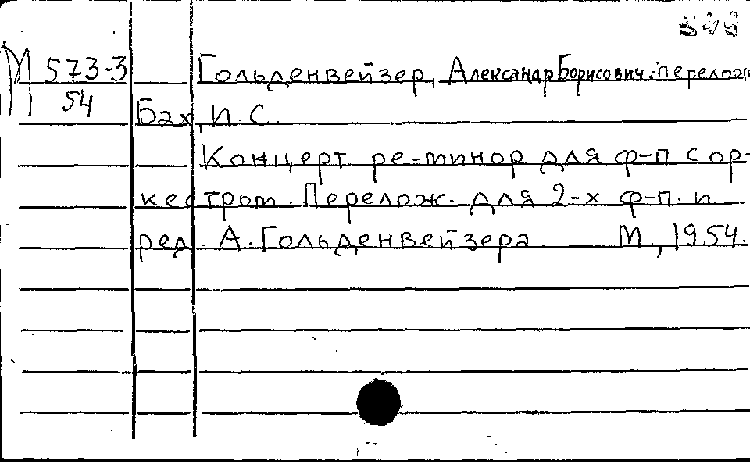 М 573-3 Гольденвейзер, Александр Борисович. перелож
54 Бах, И. С.
Концерт ре-минор для ф-п с ор-
кестром. Перелож. для 2-х ф-п. и
ред. А. Гольденвейзера М., 1954.